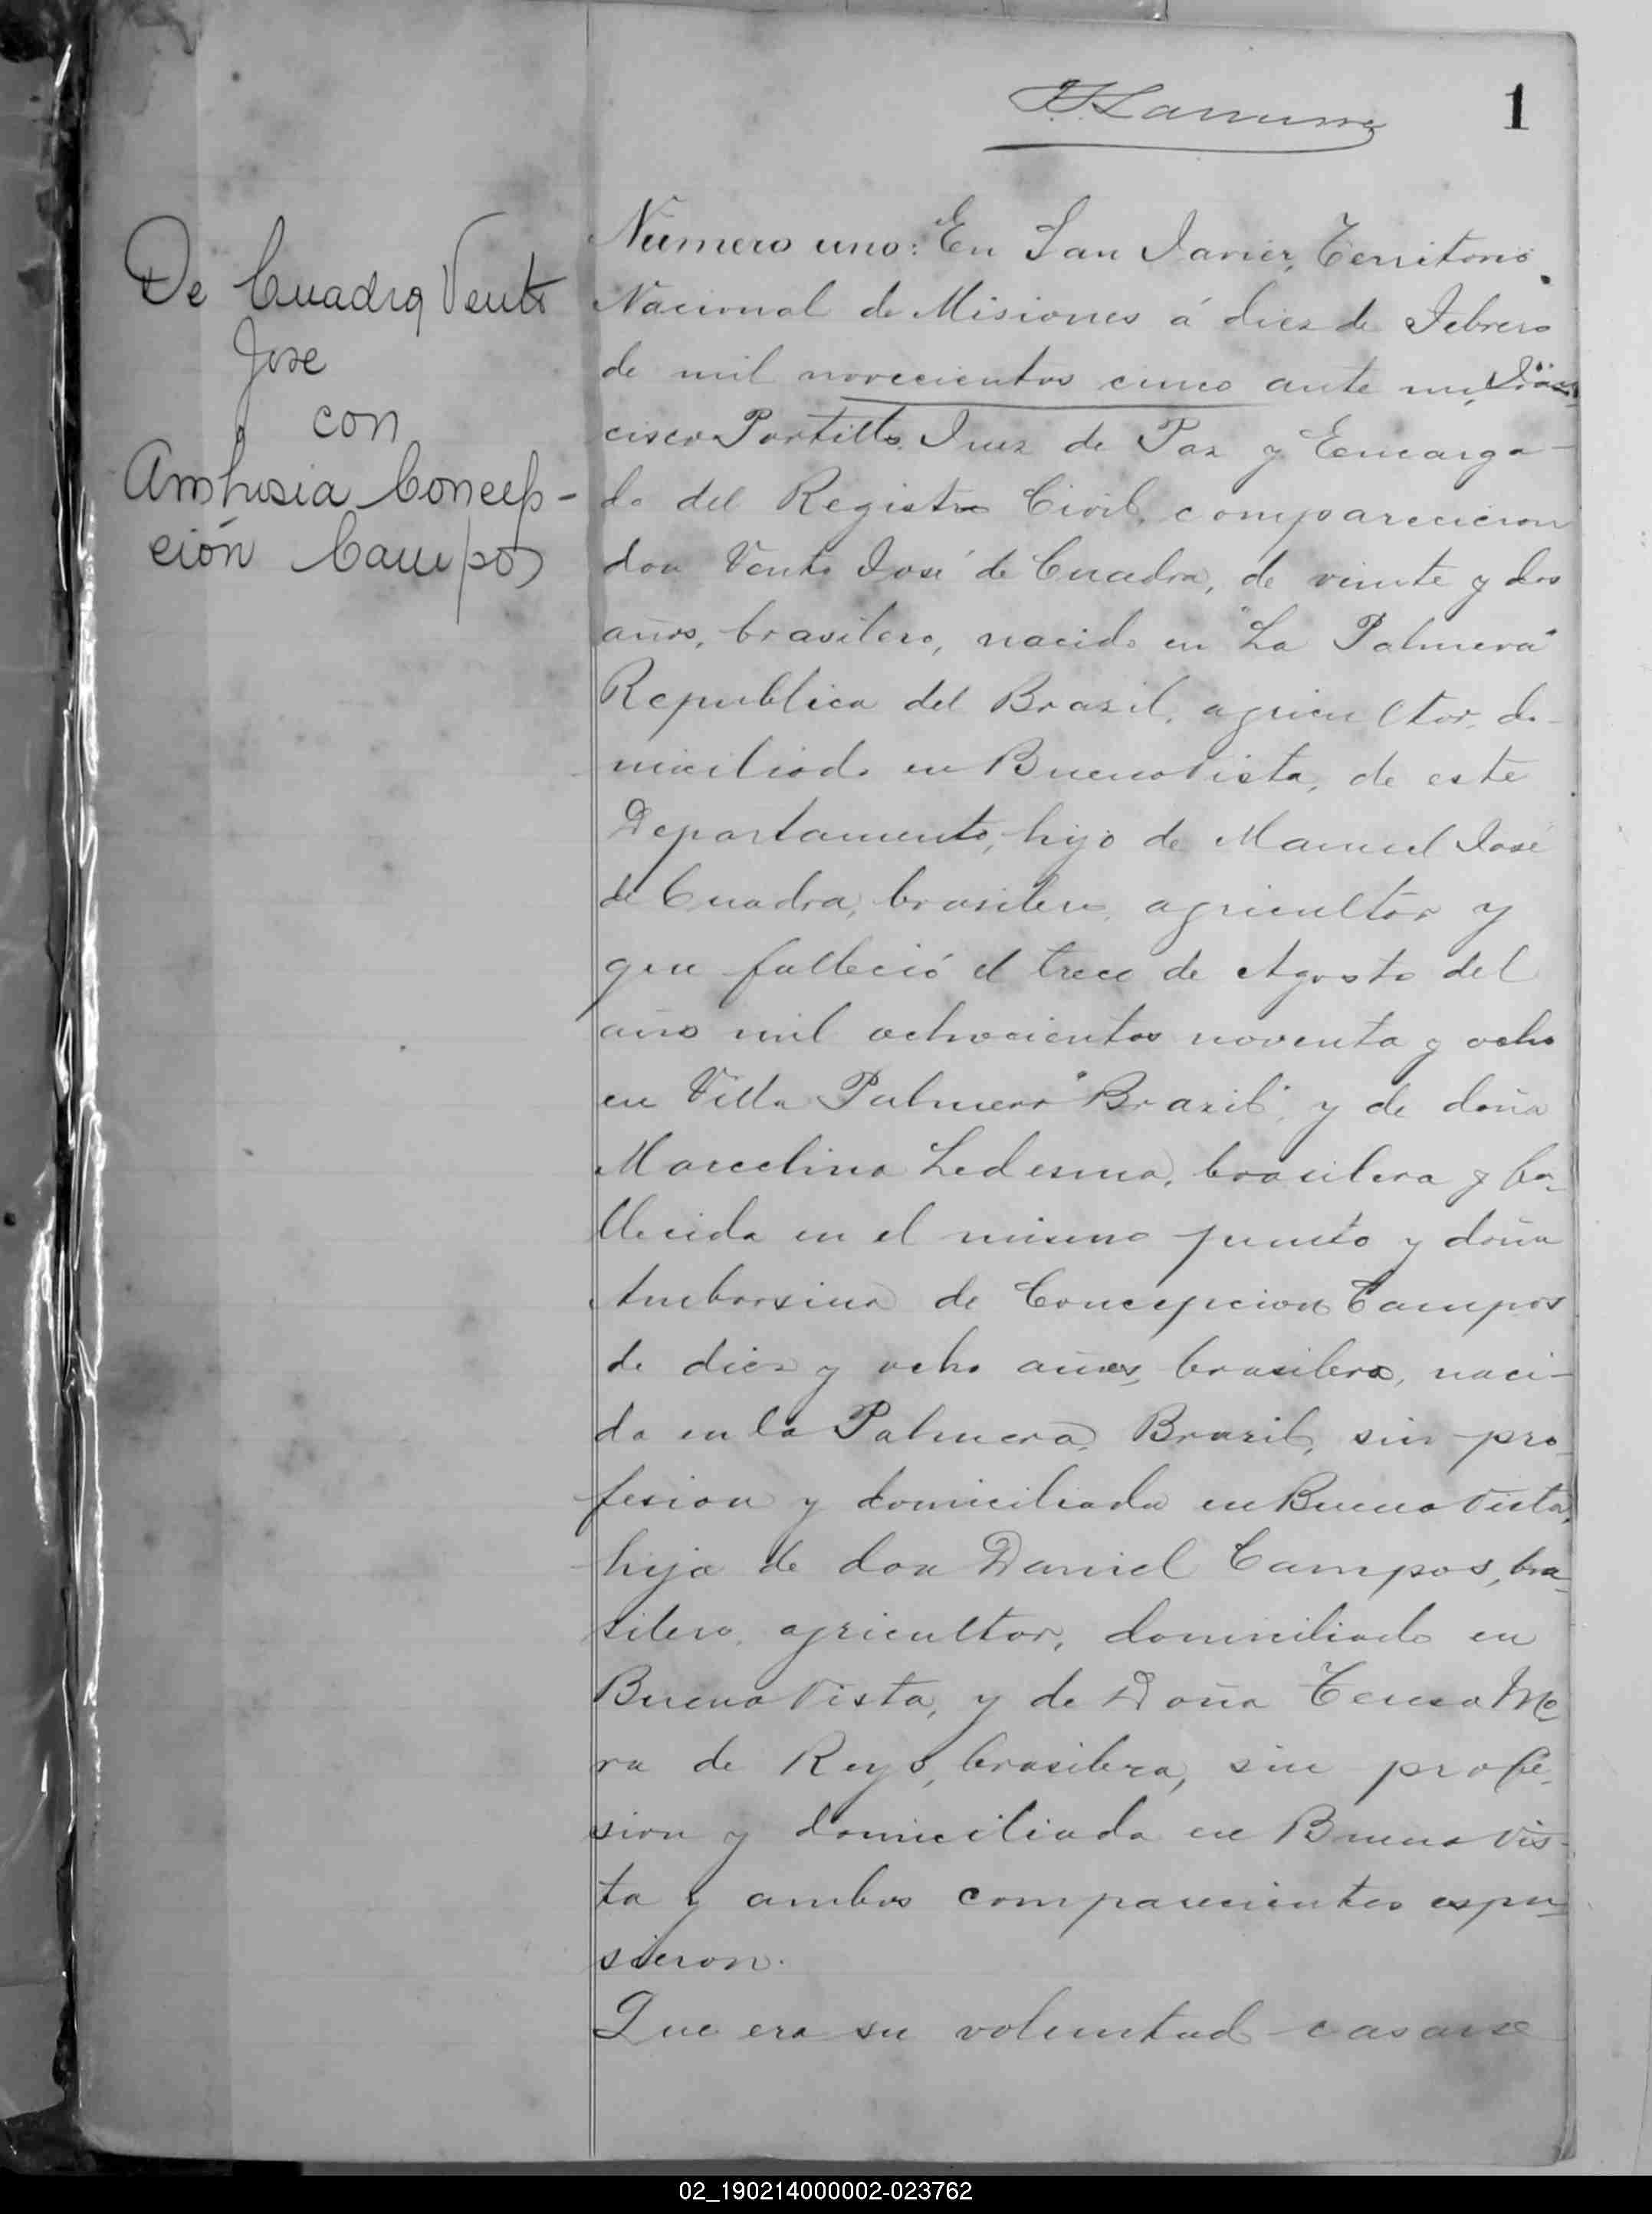 1
De Cuadra Vento
Jose
con
Ambrosia Concep-
ción Campos
Número uno: En San Javier, Territorio
Nacional de Misiones á diez de Febrero
de mil novecientos cinco ante mi, Fran
cisco Portillo Juez de Paz y Encarga-
do del Registro Civil, comparecieron
don Vento José de Cuadra, de veinte y dos
años, brasilero, nacido en "La Palmera"
Republica del Brazil, agricultor, do-
miciliado en Buena Vista, de este
Departamento, hijo de Manuel José
de Cuadra, brasilero, agricultor y
que falleció el trece de Agosto del
año mil ochocientos noventa y ocho
en Villa Palmera "Brazil", y de doña
Marcelina Ledesma, brasilera y fa-
llecida en el mismo punto y doña
Ambrosina de Concepcion Campos
de diez y ocho años, brasilera, naci-
da en la Palmera, Brazil, sin pro-
fesion y domiciliada en Buena Vista,
hija de don Daniel Campos, bra-
silero, agricultor, domiciliado en
Buena Vista, y de Doña Teresa Mo
ra de Reys, brasilera, sin profe-
sion y domiciliada en Buena Vis-
ta y ambos comparecientes espu-
sieron.
Que era su voluntad casarse
02_190214000002-023762